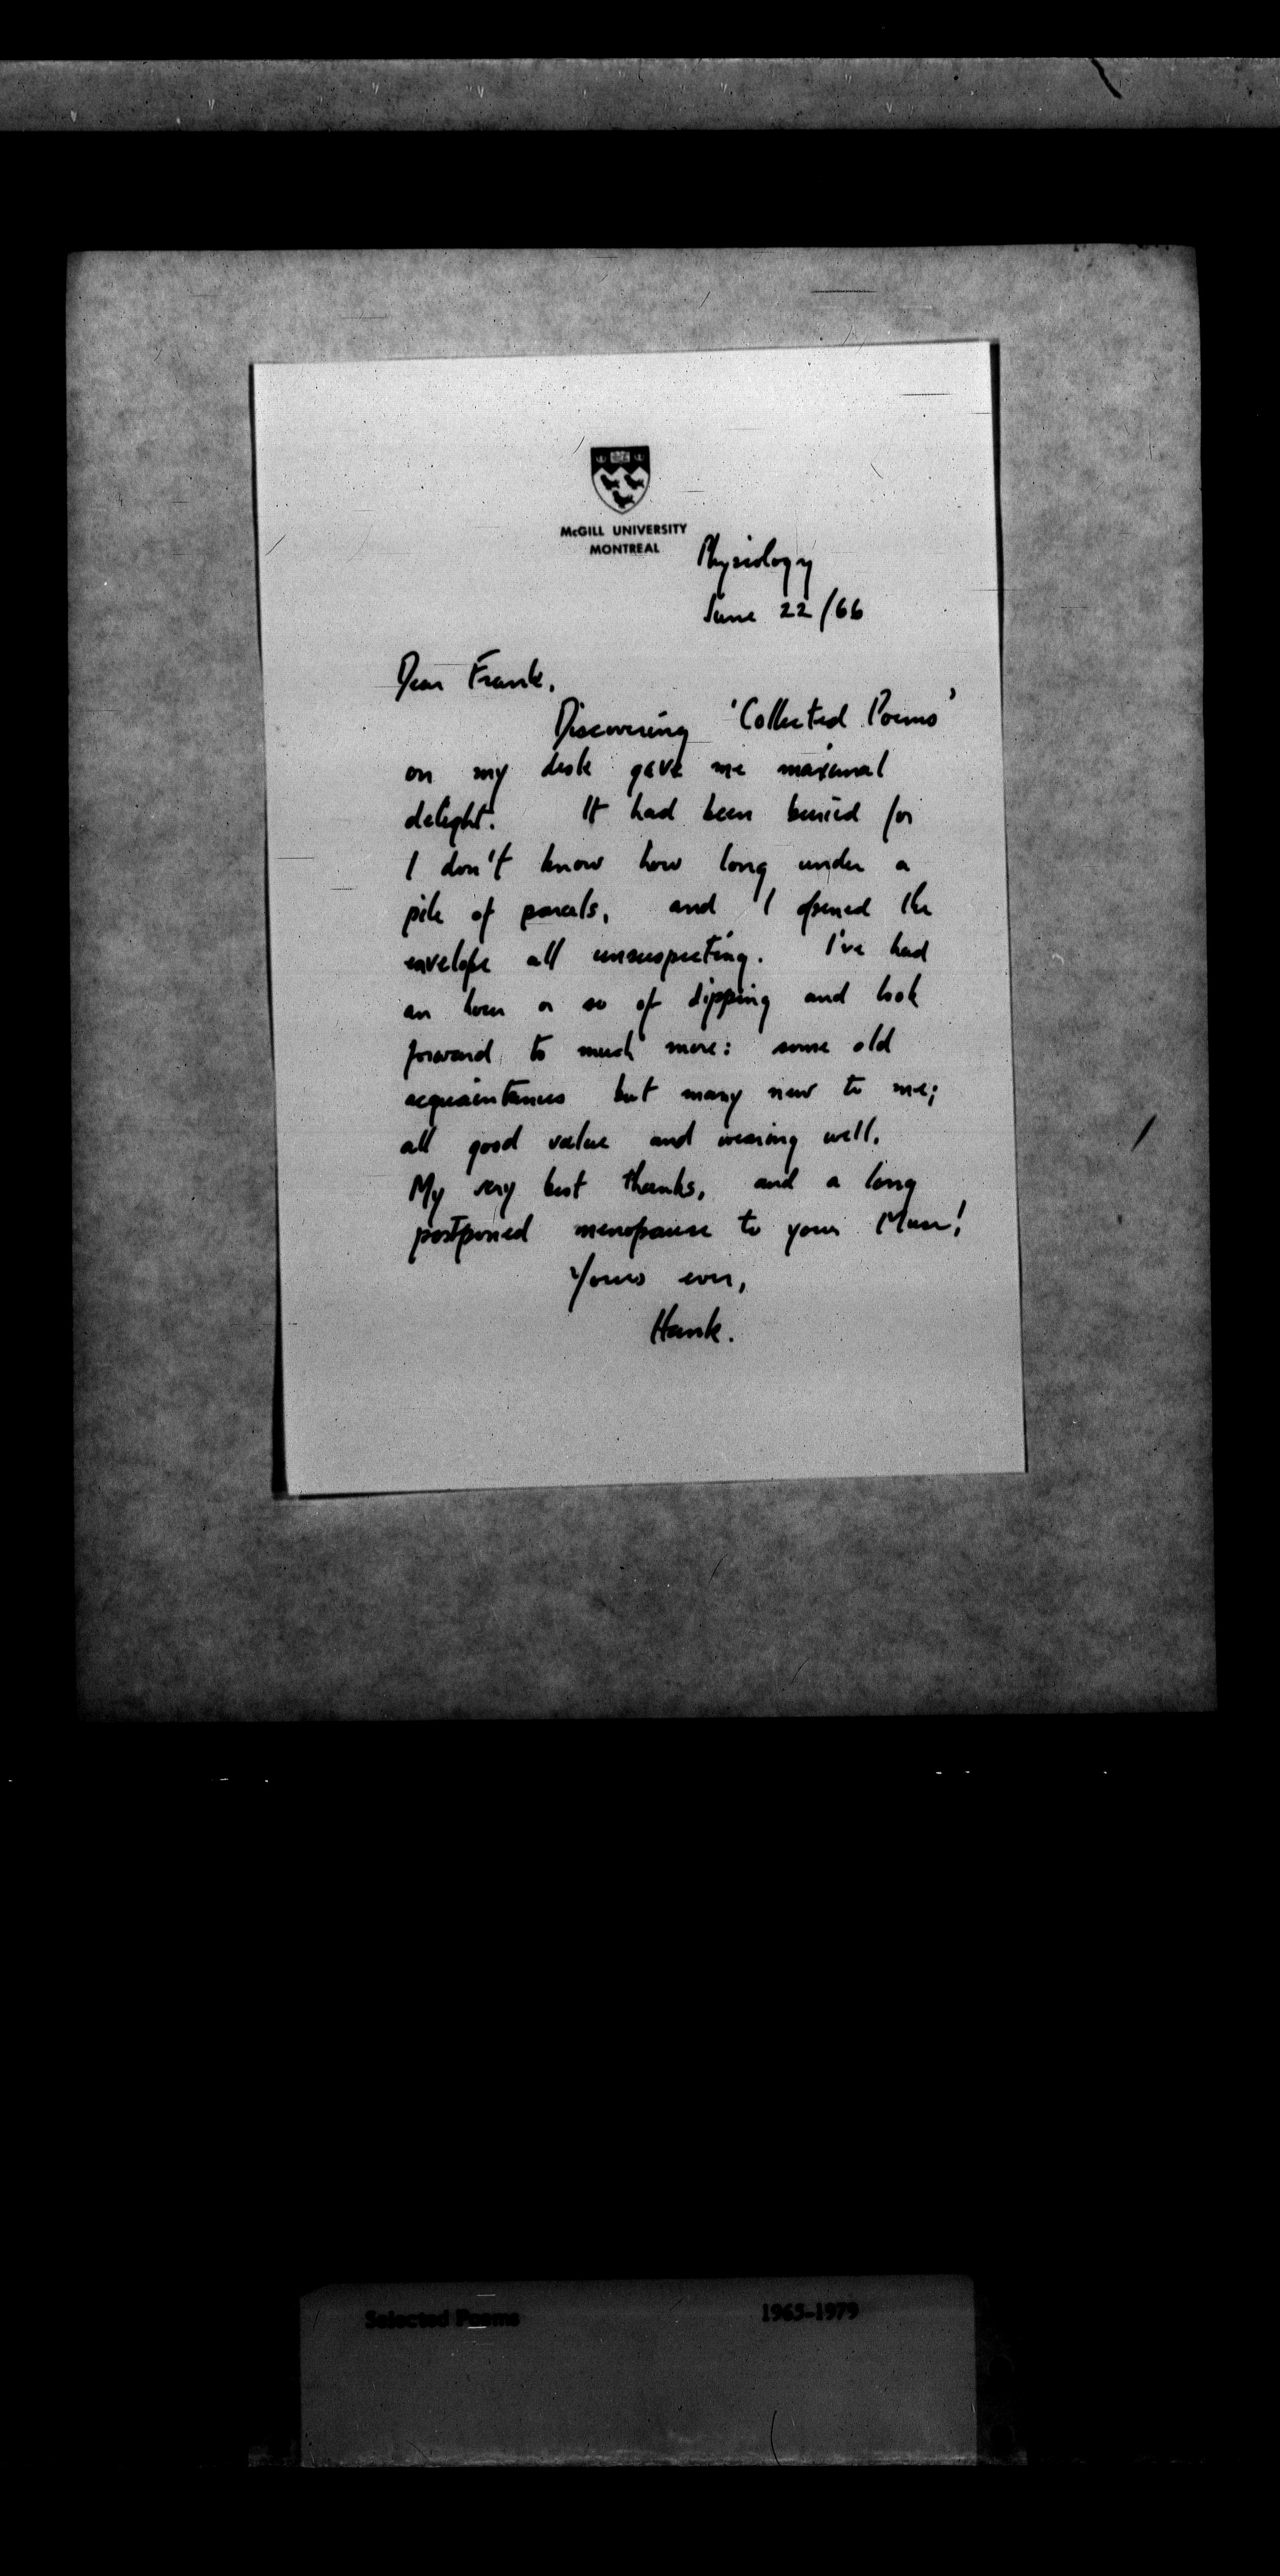 McGILL UNIVERSITY
MONTREAL
Physiology
June 22/66
Dear Frank,
Discovering 'Collected Poems'
on my desk gave me maximal
delight. It had been buried for
I don't know how long under a
pile of parcels, and I opened the
envelope all unsuspecting. I've had
an hour or so of dipping and look
forward to much more: some old
acquaintances but many new to me;
all good value and wearing well.
My very best thanks, and a long
postponed menopause to your Muse!
Yours ever,
Hank.
Selected Poems 1965-1979